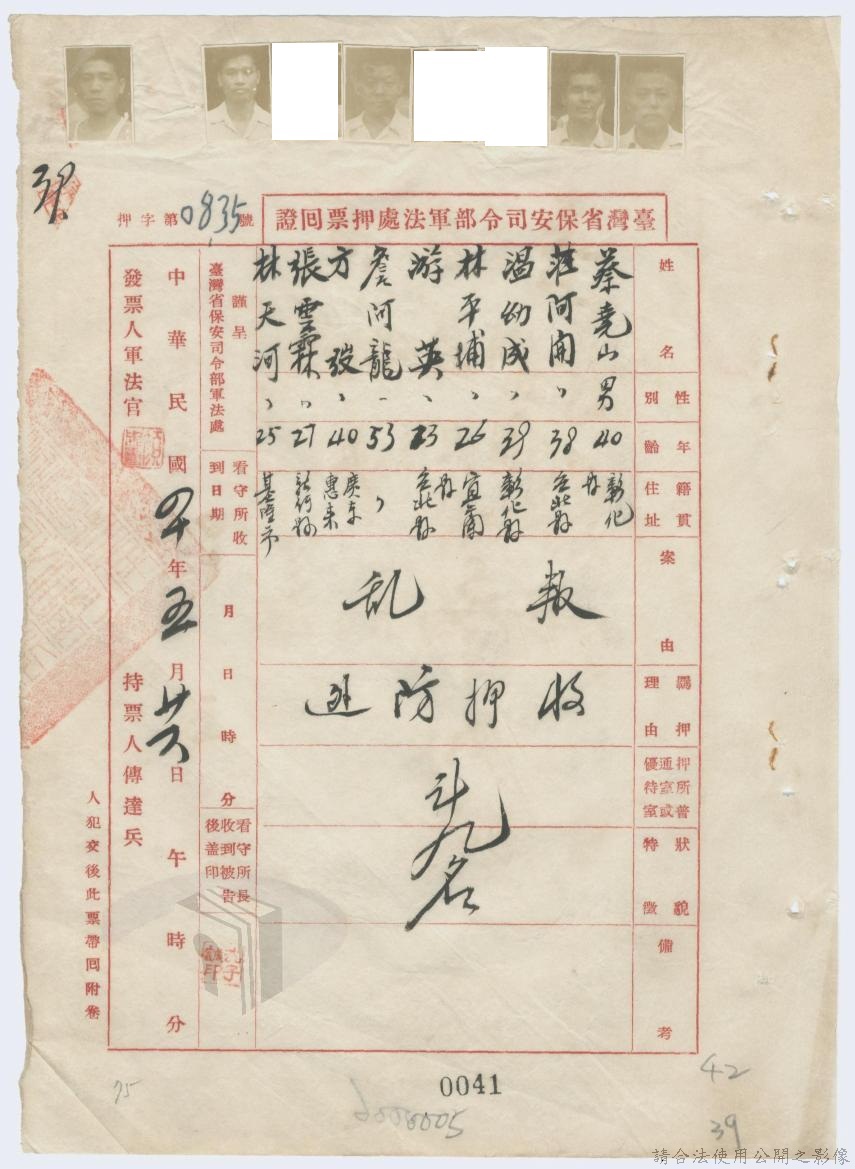 臺灣省保安司令部軍法處押票回證
押字第0835號
姓名
蔡堯山
莊阿開
溫幼成
林平埔
游英
詹阿龍
方弢
張雲霖
林天河
性別
男
〃
〃
〃
〃
〃
〃
〃
〃
年齡
40
38
39
26
23
53
40
27
25
籍貫住址
彰化縣
台北縣
彰化縣
宜蘭縣
台北縣
〃
廣東惠來
基隆市
案由
叛乱
羈押理由
收押防逃
押所普通室或優待室
狀貌特徵
計九名
備考
謹呈
臺灣省保安司令部軍法處
看守所收到日期
月日時分
看守所長收到被告後蓋印
中華民國四十年五月廿六日午時分
發票人軍法官
持票人傳達兵
人犯交後此票帶回附卷
0041
d000005
75
42
39
請合法使用公開之影像